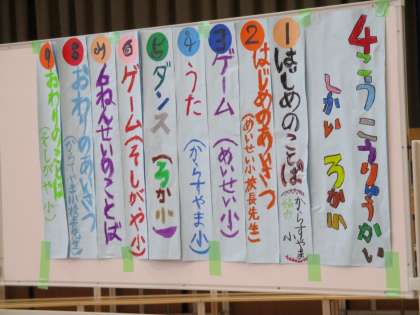 4こうこうりゅうかい
しかい ろか小
1 はじめのことば (からすやま小)
2 はじめのあいさつ (めいせい小校長先生)
3 ゲーム (めいせい小)
4 うた (からすやま小)
5 ダンス (ろか小)
6 ゲーム (そしがや小)
7 6ねんせいのことば
8 おわりのあいさつ (からすやま小校長先生)
9 おわりのことば (そしがや小)